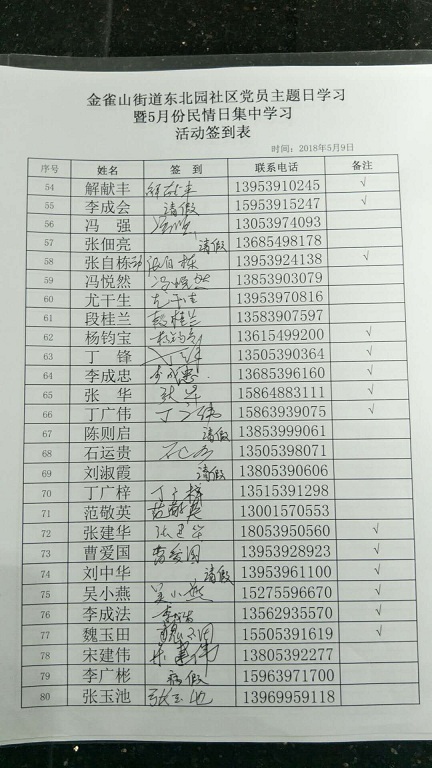 金雀山街道东北园社区党员主题日学习
暨5月份民情日集中学习
活动签到表
时间：2018年5月9日
序号 姓名 签 到 联系电话 备注
54 解献丰 解献丰 13953910245 √
55 李成会 请假 15953915247 √
56 冯 强 冯强 13053974093
57 张佃亮 请假 13685498178
58 张自栋 张自栋 13953924138 √
59 冯悦然 冯悦然 13853903079
60 尤干生 尤干生 13953970816
61 段桂兰 段桂兰 13583907597
62 杨钧宝 13615499200 √
63 丁 锋 丁锋 13505390364 √
64 李成忠 李成忠 13685396160 √
65 张 华 张华 15864883111 √
66 丁广伟 丁广伟 15863939075 √
67 陈则启 请假 13853999061
68 石运贵 13505398071
69 刘淑霞 请假 13805390606
70 丁广梓 丁广梓 13515391298
71 范敬英 范敬英 13001570553
72 张建华 张建华 18053950560 √
73 曹爱国 曹爱国 13953928923 √
74 刘中华 请假 13953961100 √
75 吴小燕 吴小燕 15275596670 √
76 李成法 李成法 13562935570 √
77 魏玉田 魏玉田 15505391619 √
78 宋建伟 宋建伟 13805392277
79 李广彬 病假 15963971700
80 张玉池 张玉池 13969959118